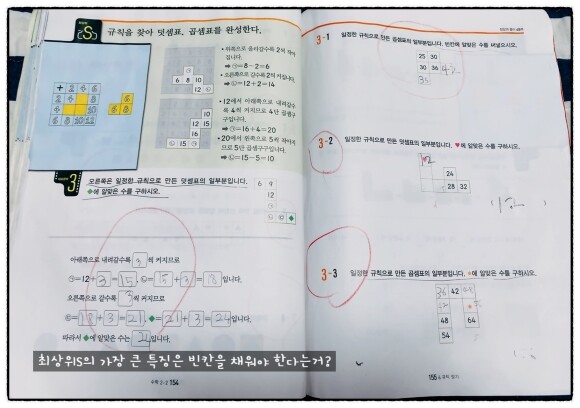 규칙을 찾아 덧셈표, 곱셈표를 완성한다.
+ 2 4 6
2 4 8
4 8
6 8 10 12
6
6 8
6 8 10
12 ㉡
• 위쪽으로 올라갈수록 2씩 작아
집니다.
➡ ㉠=8-2=6
• 오른쪽으로 갈수록 2씩 커집니다.
➡ ㉡=12+2=14
10
12 15
16
㉡ 15 ㉠
• 12에서 아래쪽으로 내려갈수
록 4씩 커지므로 4단 곱셈구
구입니다.
➡ ㉠=16+4=20
• 20에서 왼쪽으로 5씩 작아지
므로 5단 곱셈구구입니다.
➡ ㉡=15-5=10
3
오른쪽은 일정한 규칙으로 만든 덧셈표의 일부분입니다.
◆에 알맞은 수를 구하시오.
6 9
12
㉠
◆
아래쪽으로 내려갈수록 3 씩 커지므로
㉠=12+3=15, ㉡=15+3=18입니다.
오른쪽으로 갈수록 3씩 커지므로
㉢=18+3=21, ◆=21+3=24입니다.
따라서 ◆에 알맞은 수는 24입니다.
수학 2-2 154
3-1 일정한 규칙으로 만든 곱셈표의 일부분입니다. 빈칸에 알맞은 수를 써넣으시오.
25 30
30 36 42
35
3-2 일정한 규칙으로 만든 덧셈표의 일부분입니다. ♥에 알맞은 수를 구하시오.
24
28 32
(12
3-3 일정한 규칙으로 만든 곱셈표의 일부분입니다. ★에 알맞은 수를 구하시오.
36 42
★
48 64
54
155
최상위S의 가장 큰 특징은 빈칸을 채워야 한다는거?